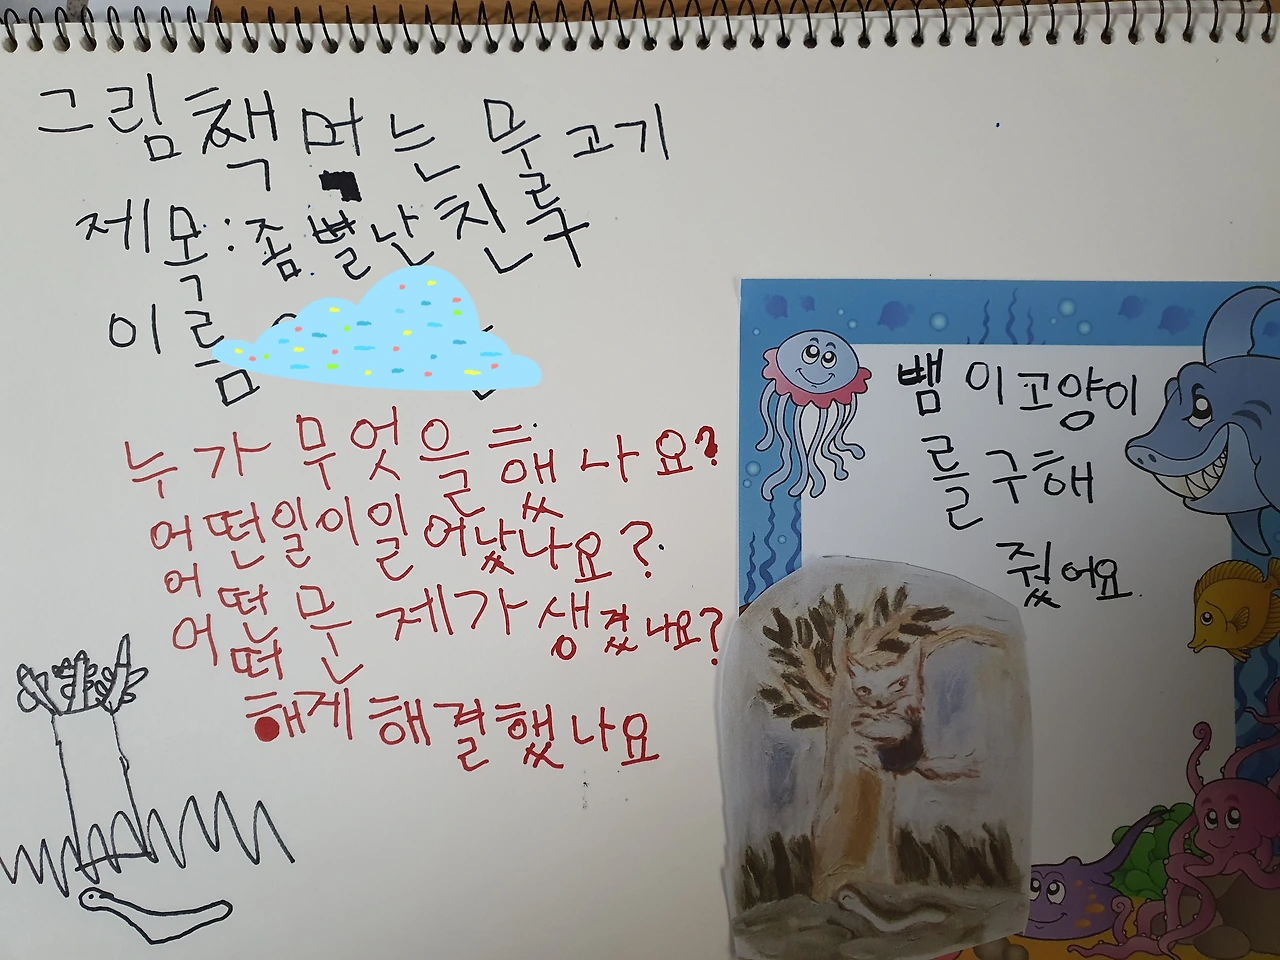 그림책 먹는 물고기
제목: 좀 별난 친구
이름
누가 무엇을 했나요?
어떤일이 일어났나요?
어떤 문제가 생겼나요?
어떠
하게 해결했나요
뱀이 고양이
를 구해
줬어요.